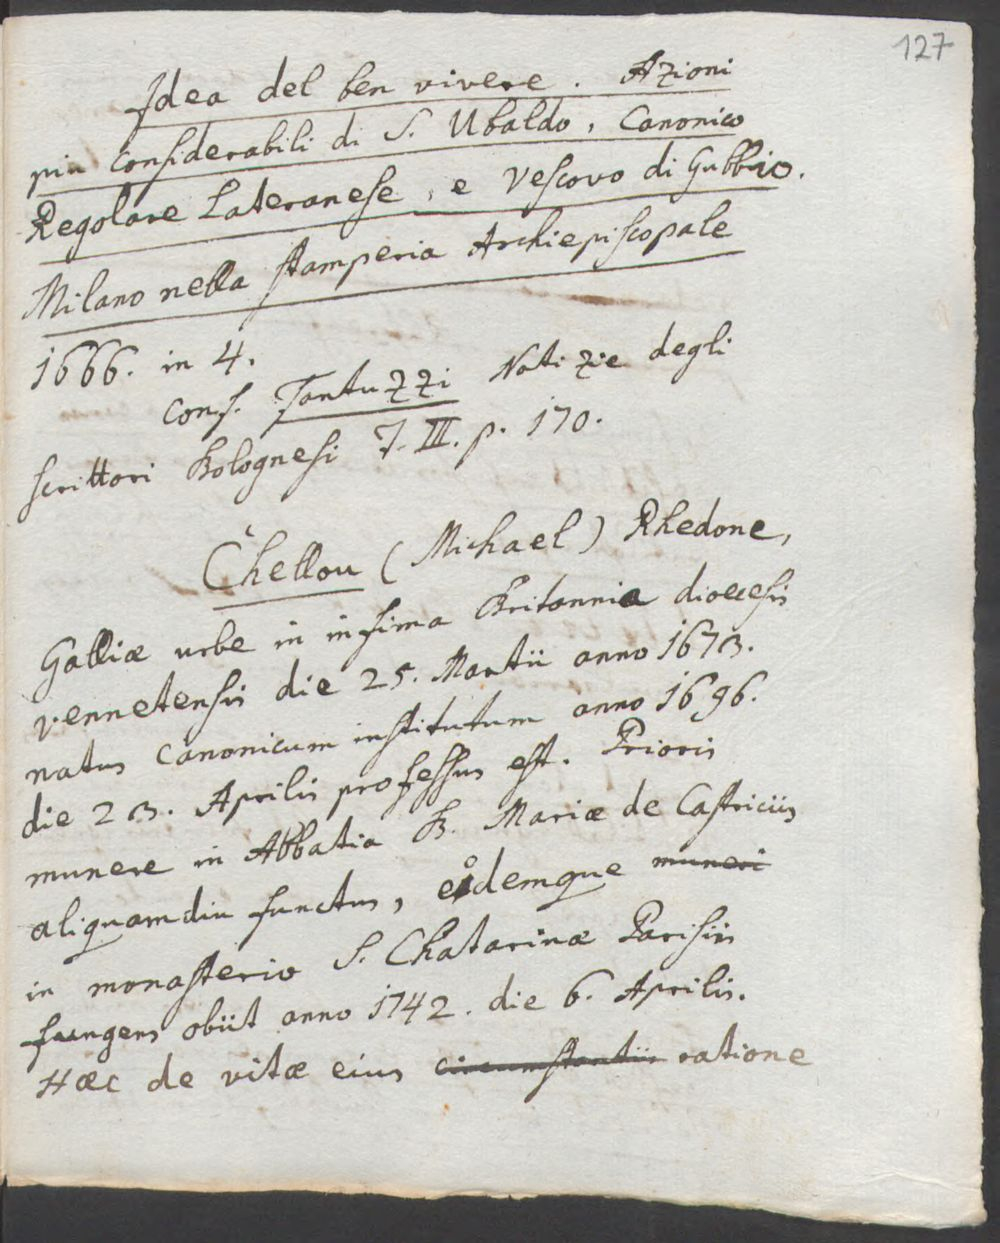 127
Idea del ben vivere. Azioni
piu considerabili di S. Ubaldo, Canonico
Regolare Lateranese, e Vescovo di Gubbio.
Milano nella stamperia Archiepiscopale
1666. in 4.
Conf. Fantuzzi Notizie degli
scrittori Bolognesi T. III. p. 170.
Chellou (Michael) Rhedone,
Galliæ urbe in infima Britannia diœcesis
vennetensis die 25. Martii anno 1673.
natus canonicum institutum anno 1696.
die 23. Aprilis professus est. Prioris
munere in Abbatia B. Mariæ de Castriciis
aliquamdiu functus, eodemque muneri
in monasterio S. Chatarinæ Parisiis
fungens obiit anno 1742. die 6. Aprilis.
Hæc de vitæ eius circumstantiis ratione